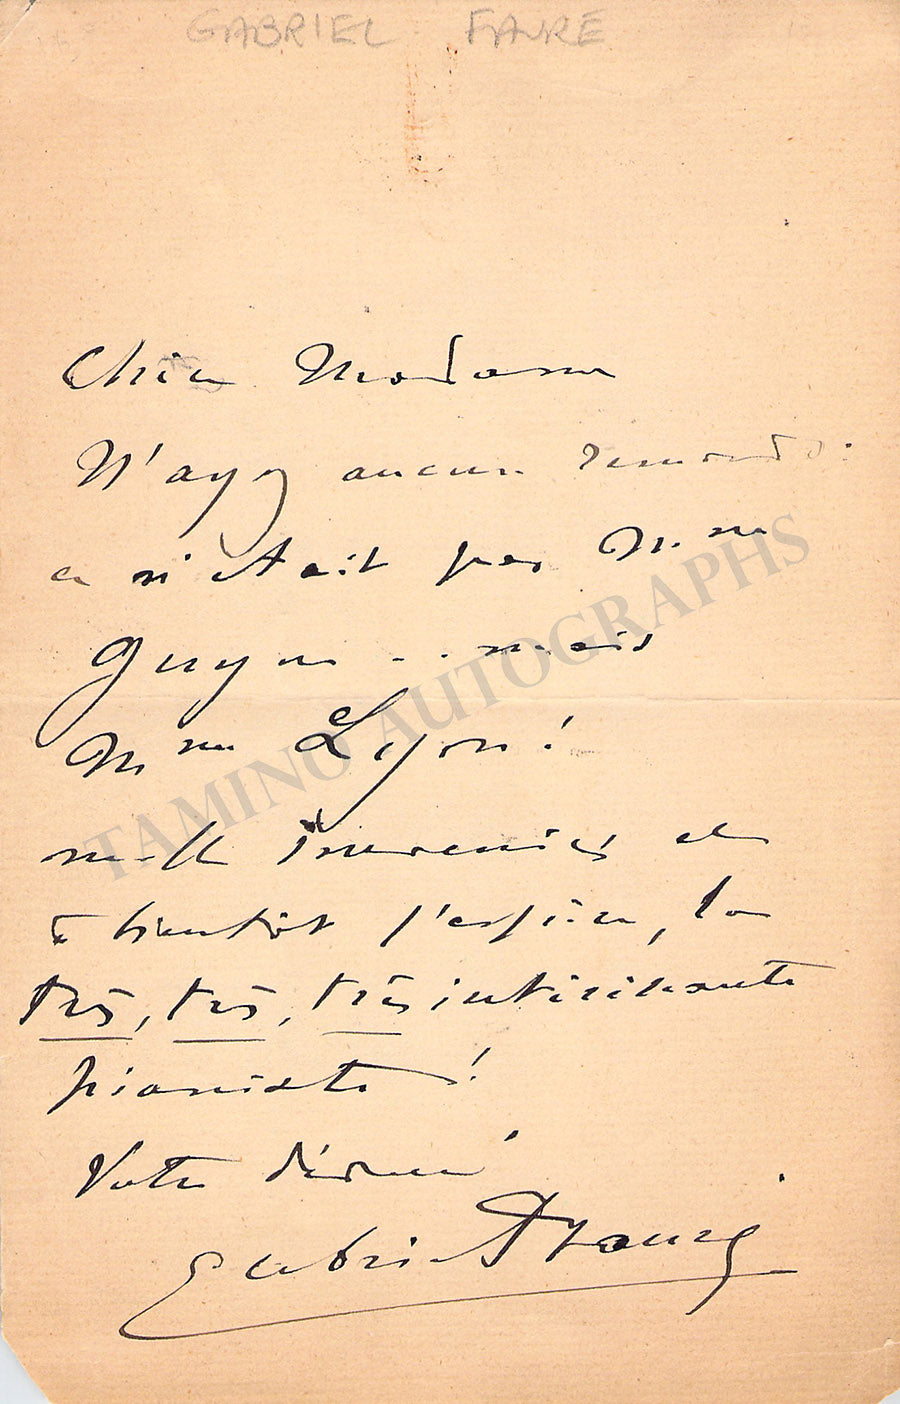 GABRIEL FAURE
Chère Madame
N'ayez aucun remords:
ce n'était pas Mme
Guyon... mais
Mme Lyon!
Mille souvenirs et
à bientôt j'espère, la
très, très, très intéressante
pianiste!
Votre dévoué
Gabriel Fauré
TAMINO AUTOGRAPHS